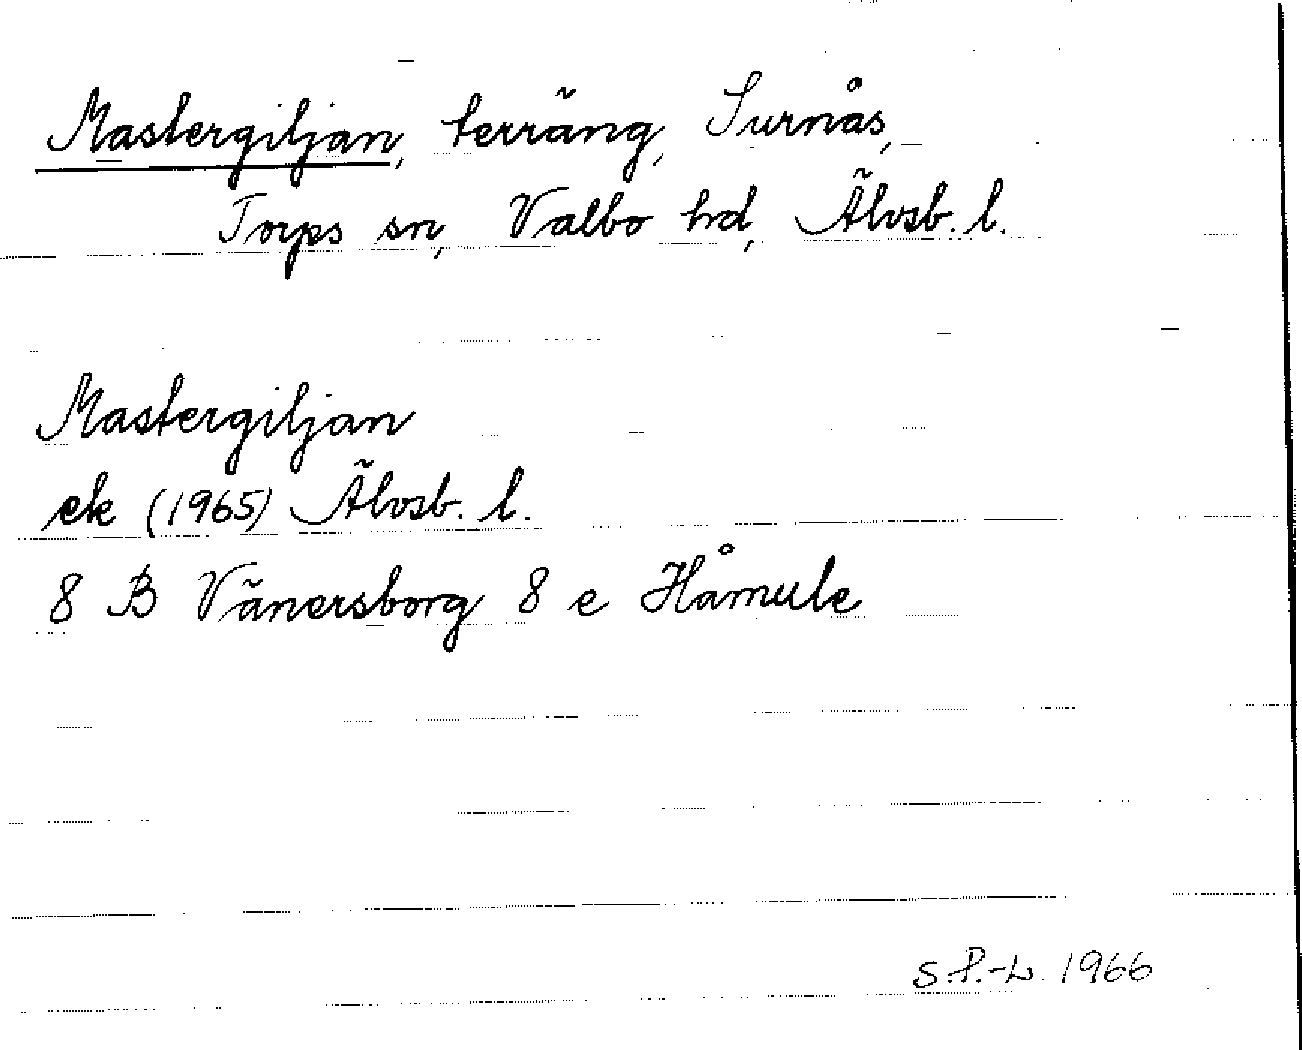 Mastergiljan, terräng, Surnås,
Torps sn, Valbo hd, Älvsb. l.
Mastergiljan
ek (1965) Älvsb. l.
8 B Vänersborg 8 e Håmule
S.P.-L. 1966